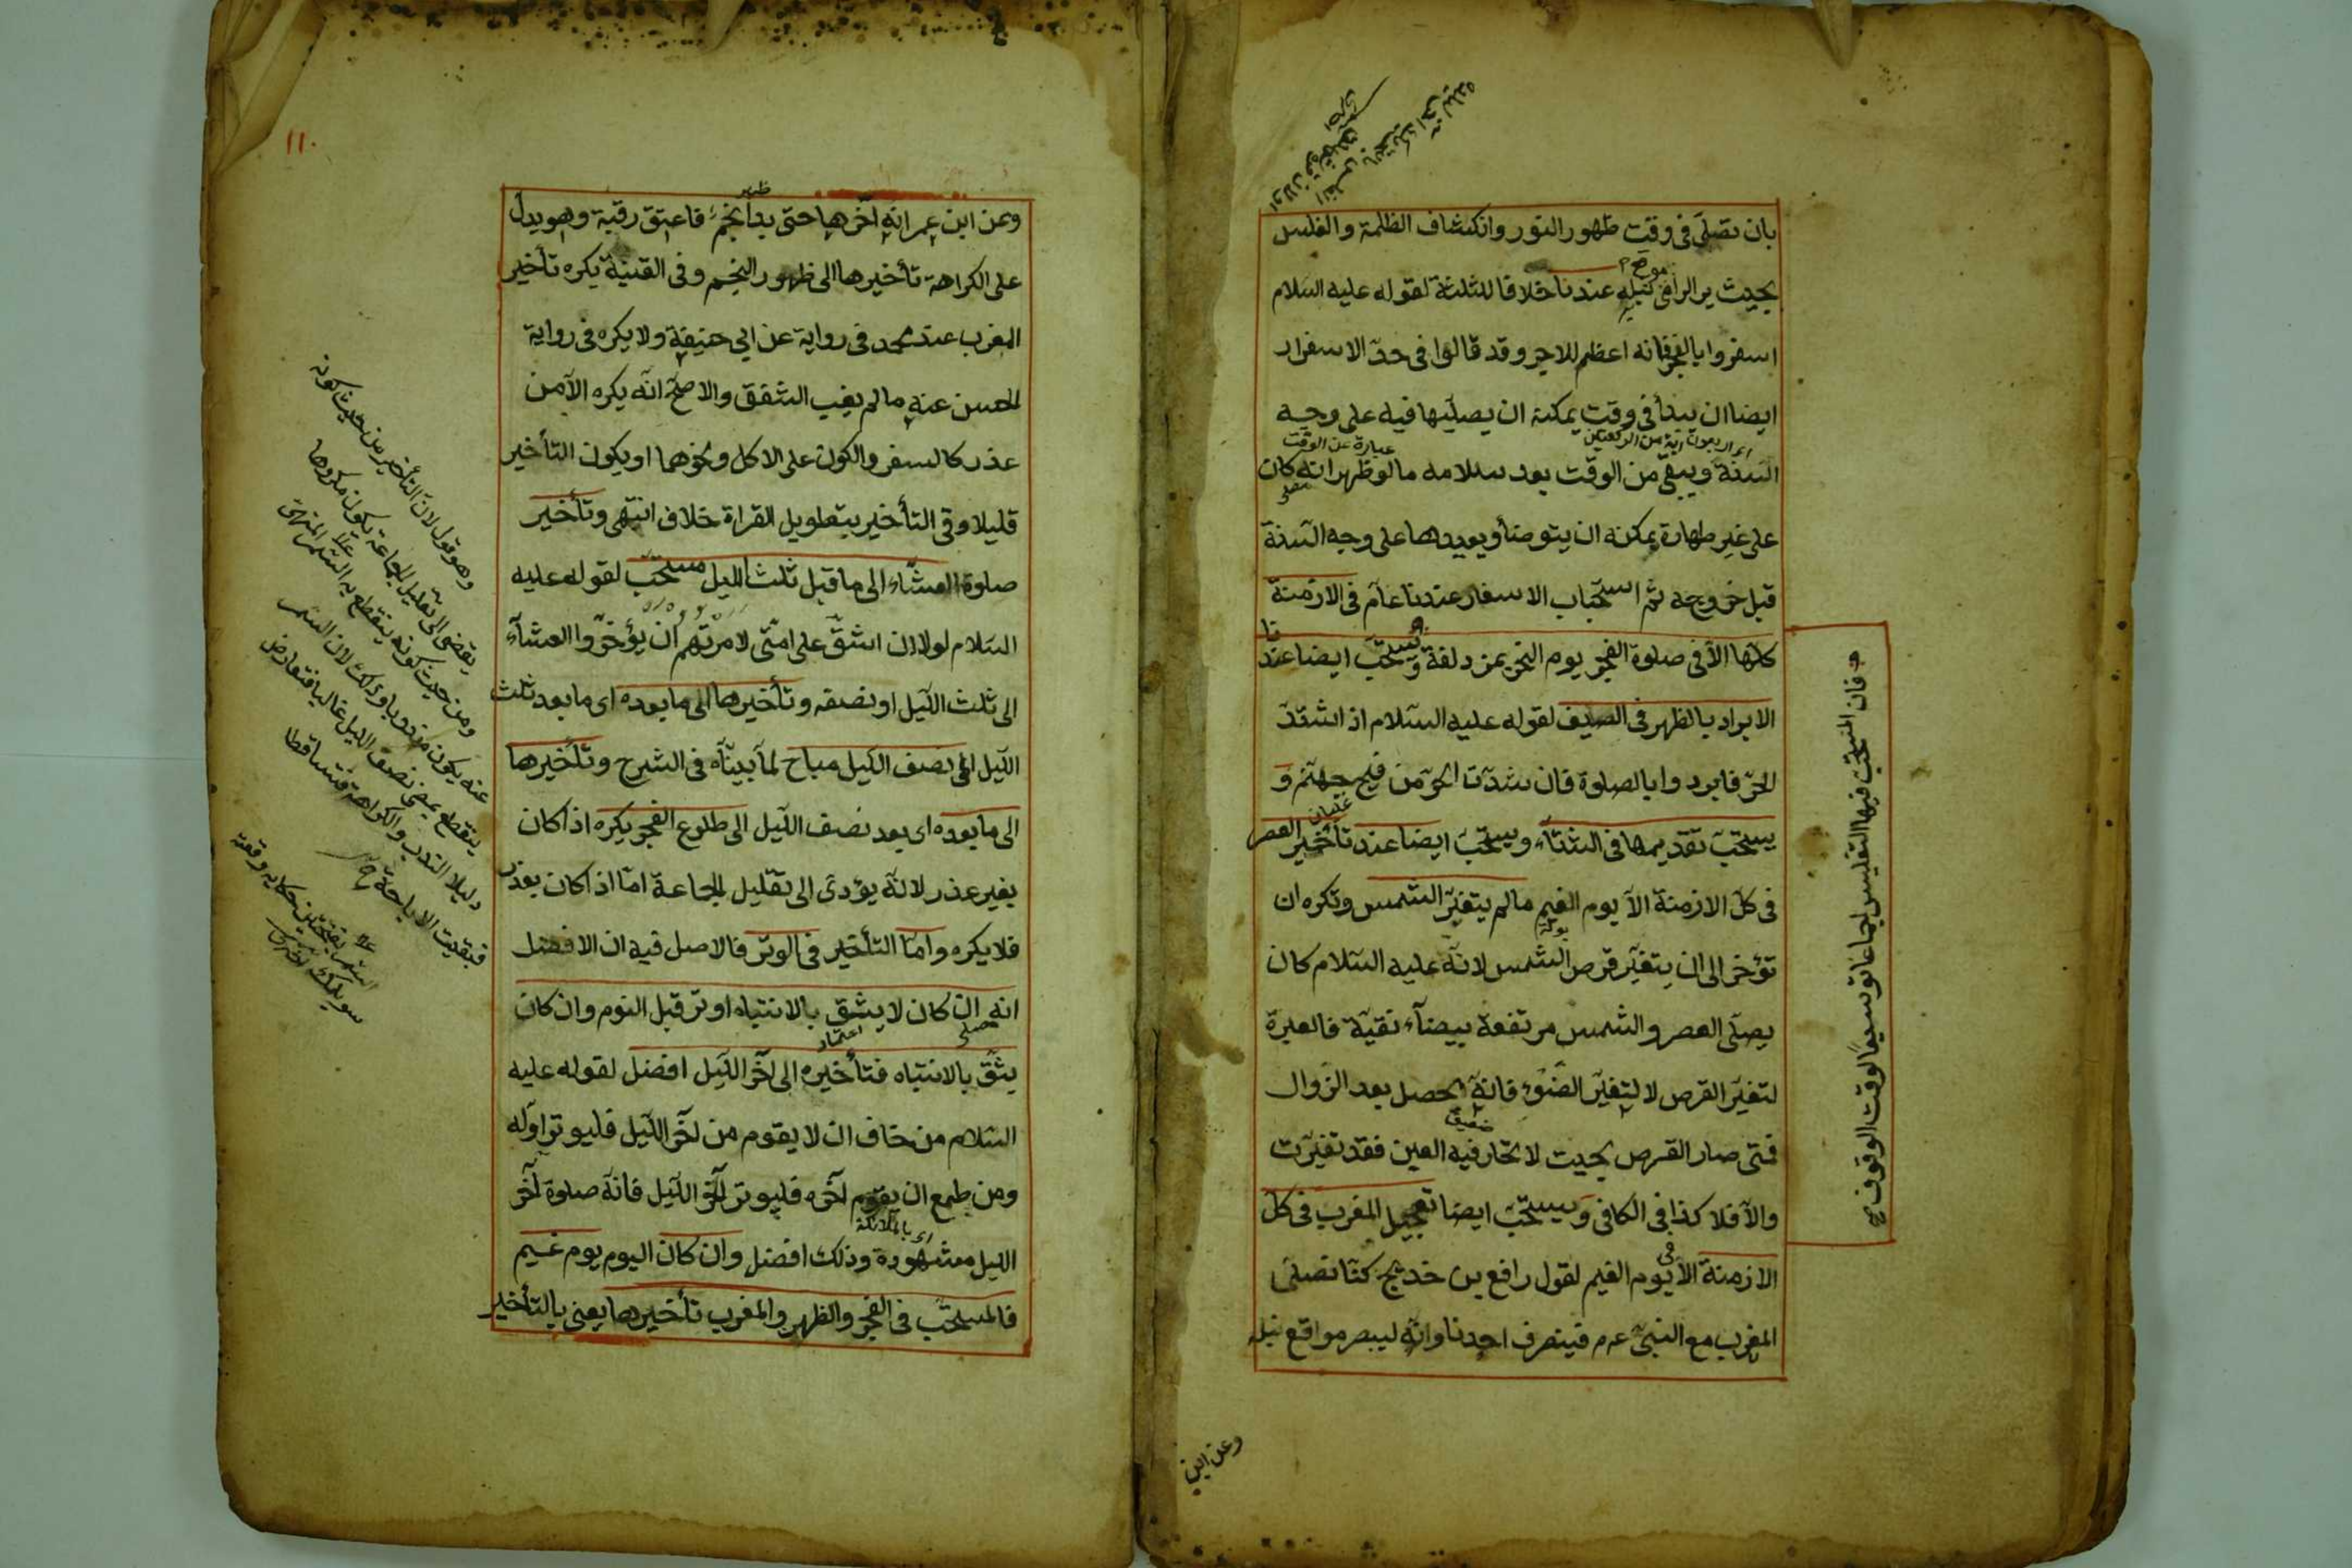 بان تصلى فى وقت ظهور النور وانكشاف الظلمة والغلس
بحيث ير الرامى موضع نبله عندنا خلافا للثلثة لقوله عليه السلام
اسفروا بالفجر فانه اعظم للاجر وقد قالوا فى حد الاسفرار
ايضا ان يبدأ فى وقت يمكنه ان يصليها فيه على وجه
اى اربعون اية من الركعتين
عبارة عن الوقت
السنة ويبقى من الوقت بعد سلامه ما لو ظهر انه كان
مصلى
على غير طهارة يمكنه ان يتوضأ ويعيدها على وجه السنة
قبل خروجه ثم استحباب الاسفار عندنا عام فى الازمنة
كلها الا فى صلوة الفجر يوم النحر بمزدلفة ويستحب ايضا عندنا
الابراد بالظهر فى الصيف لقوله عليه السلام اذ اشتد
الحر فابردوا بالصلوة فان شدت الحر من فيح جهنم و
غليان
يستحب تقديمها فى الشتاء ويستحب ايضا عند تأخير العصر
فى كل الازمنة الا يوم الغيم ما لم يتغير الشمس وتكره ان
تؤخر الى ان يتغير قرص الشمس لانه عليه السلام كان
يصلى العصر والشمس مرتفعة بيضاء نقية فالعبرة
لتغير القرص لا لتغير الضوء فانه يحصل بعد الزوال
فمتى صار القرص بحيث لا تحار فيه العين فقد تغيرت
والا فلا كذا فى الكافى ويستحب ايضا تعجيل المغرب فى كل
الازمنة الا فى يوم الغيم لقول رافع بن خديج كنا نصلى
المغرب مع النبى عه م فينصرف احدنا وانه ليبصر مواقع نبله
و فان المستحب فيها التغليس اجماعا توسيعا لوقت الوقوف
وعن ابن
١١٠
وعن ابن عمر انه اخرها حتى بدا نجم فاعتق رقبة وهو يدل
ظهر
على الكراهة تأخيرها الى ظهور النجم وفى القنية يكره تأخير
المغرب عند محمد فى رواية عن ابى حنيفة ولا يكره فى رواية
الحسن عنه ما لم يغب الشفق والاصح انه يكره الا من
عذر كالسفر والكون على الاكل ونحوهما او يكون التأخير
قليلا وفى التأخير بتطويل القراة خلاف انتهى وتأخير
صلوة العشاء الى ما قبل ثلث الليل مستحب لقوله عليه
السلام لولا ان اشق على امتى لامرتهم ان يؤخروا العشاء
الى ثلث الليل او نصفه وتأخيرها الى ما بعده اى ما بعد ثلث
الليل الى نصف الليل مباح لما بيناه فى الشرح وتأخيرها
الى ما بعده اى بعد نصف الليل الى طلوع الفجر يكره اذا كان
بغير عذر لانه يؤدى الى تقليل الجماعة اما اذا كان بعذر
فلا يكره واما التأخير فى الوتر فالاصل فيه ان الافضل
انه ان كان لا يثق بالانتباه اوتر قبل النوم وان كان
مصلى
اعتماد
يثق بالانتباه فتأخيره الى آخر الليل افضل لقوله عليه
السلام من خاف ان لا يقوم من آخر الليل فليوتر اوله
ومن طمع ان يقوم آخره فليوتر آخر الليل فانه صلوة آخر
اى بالملائكة
الليل مشهودة وذلك افضل وان كان اليوم يوم غيم
فالمستحب فى الفجر والظهر والمغرب تأخيرها يعنى بالتأخير
وهو قول لان التأخير من حيث كونه
يفضى الى تقليل الجماعة يكون مكروها
ومن حيث كونه ينقطع به السمر المنهى
عنه يكون مندوبا وذلك لان السمر
ينقطع بمضى نصف الليل غالبا فتعارض
دليلا الندب والكراهة فتساقطا
فبقيت الاباحة
السمر بفتحتين حكايه وقصه
سويلمك اختري